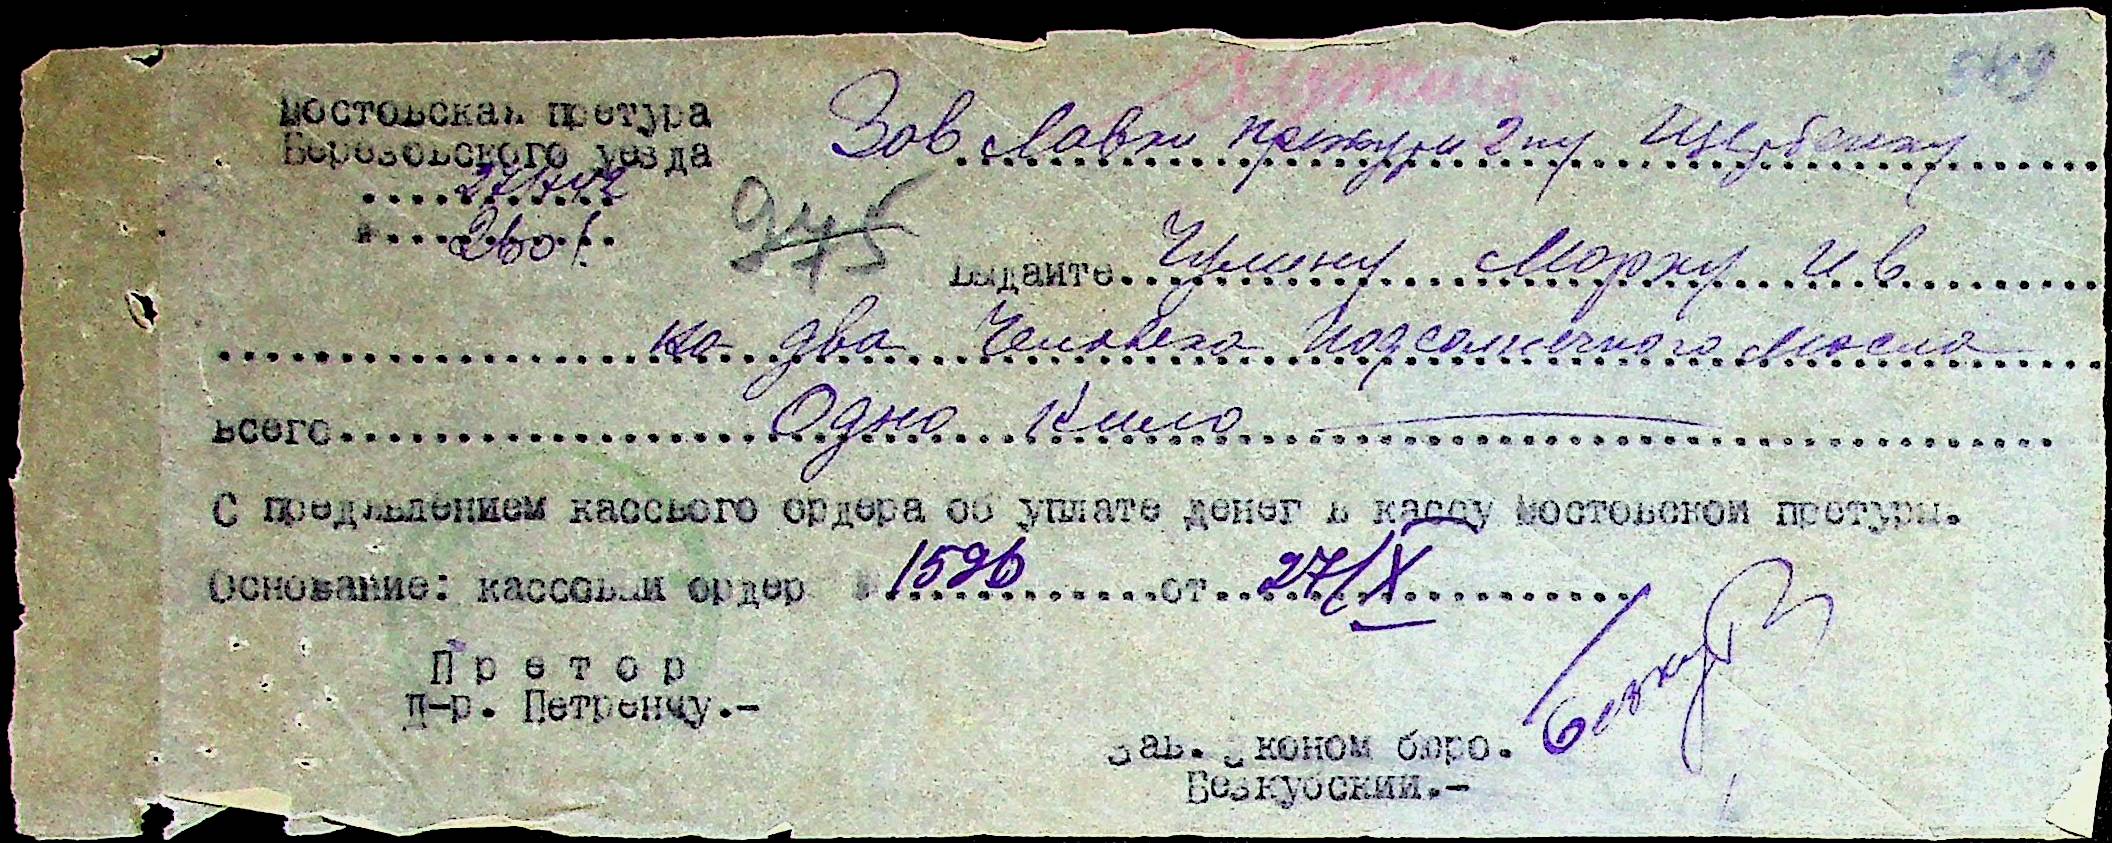 549
Мостовская претура
Березовского уезда
Зав Лавки претуры г-ну Щербину
№ 2601
975
Выдайте Чулину Марку Ив
на два Человека Подсолнечного Масла
Всего Одно Кило
С предявлением кассвого ордера об уплате денег в кассу Мостовской претуры.
Основание: кассовый ордер № 1596 от 27/IX
Претор
Д-р. Петренчу.-
Зав. Эконом бюро.
Безкубский.-